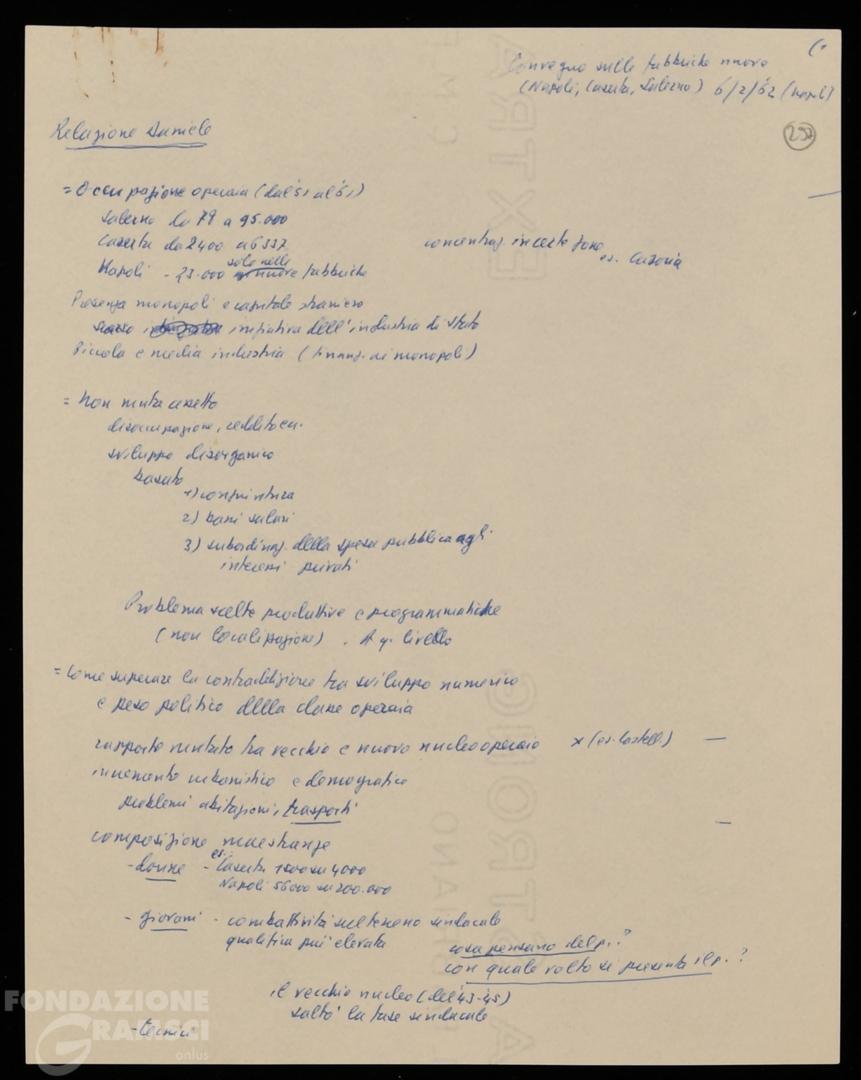 Convegno sulle fabbriche nuove
(Napoli, Caserta, Salerno) 6/2/62 (Napoli)
252
Relazione Daniele
= Occupazione operaia (dal '51 al '61)
Salerno da 79 a 95.000
Caserta da 2400 a 6337
concentraz. in certe zone
es. Casoria
solo nelle
Napoli - 23.000 nuove fabbriche
Presenza monopoli e capitale straniero
scarsa iniziativa dell'industria di stato
Piccola e media industria (finanz. dei monopoli)
= Non muta assetto
disoccupazione, reddito ecc.
sviluppo disorganico
basato
1)
2) bassi salari
3) subordinaz. della spesa pubblica agli
interessi privati
Problema scelte produttive e programmatiche
(non localizzazione). A q. livello
= Come superare la contraddizione tra sviluppo numerico
e peso politico della classe operaia
rapporto mutato tra vecchio e nuovo nucleo operaio x (es. Castell.)
incremento urbanistico e demografico
problemi abitazioni, trasporti
composizione maestranze
es.
- donne - Caserta 1500 su 4000
Napoli 56000 su 200.000
- giovani - combattività sul terreno sindacale
qualifica più elevata
cosa pensano del p.?
con quale volto si presenta il p.?
il vecchio nucleo (del '43-45)
saltò la fase sindacale
- tecnici
FONDAZIONE
GRAMSCI
onlus